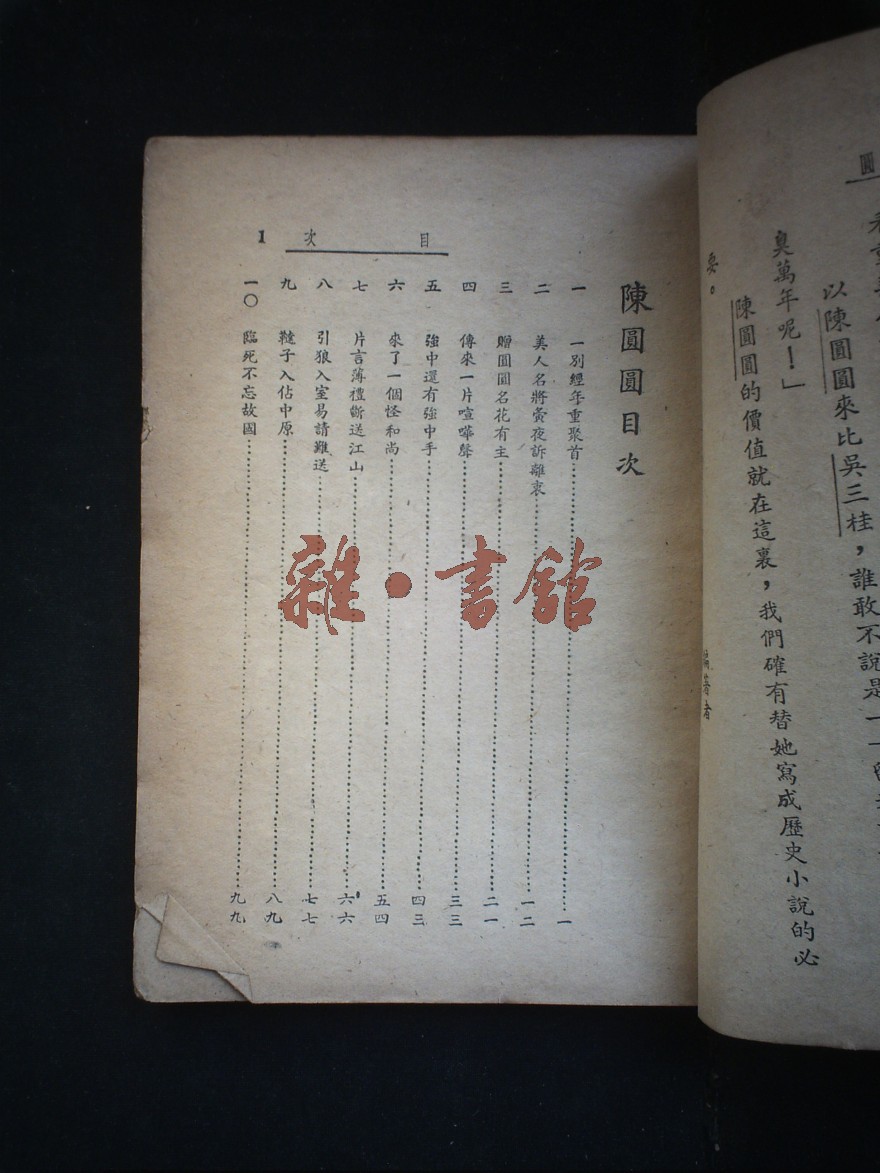 圓
以陳圓圓來比吳三桂，誰敢不說是一
臭萬年呢！」
陳圓圓的價值就在這裏，我們確有替她寫成歷史小說的必
要。
編著者
目次 1
陳圓圓目次
一 一別經年重聚首 一
二 美人名將夤夜訴離衷 一二
三 贈圓圓名花有主 二一
四 傳來一片喧嘩聲 三三
五 強中還有強中手 四三
六 來了一個怪和尚 五四
七 片言薄禮斷送江山 六六
八 引狼入室易請難送 七七
九 韃子入佔中原 八九
一〇 臨死不忘故國 九九
雜·書館